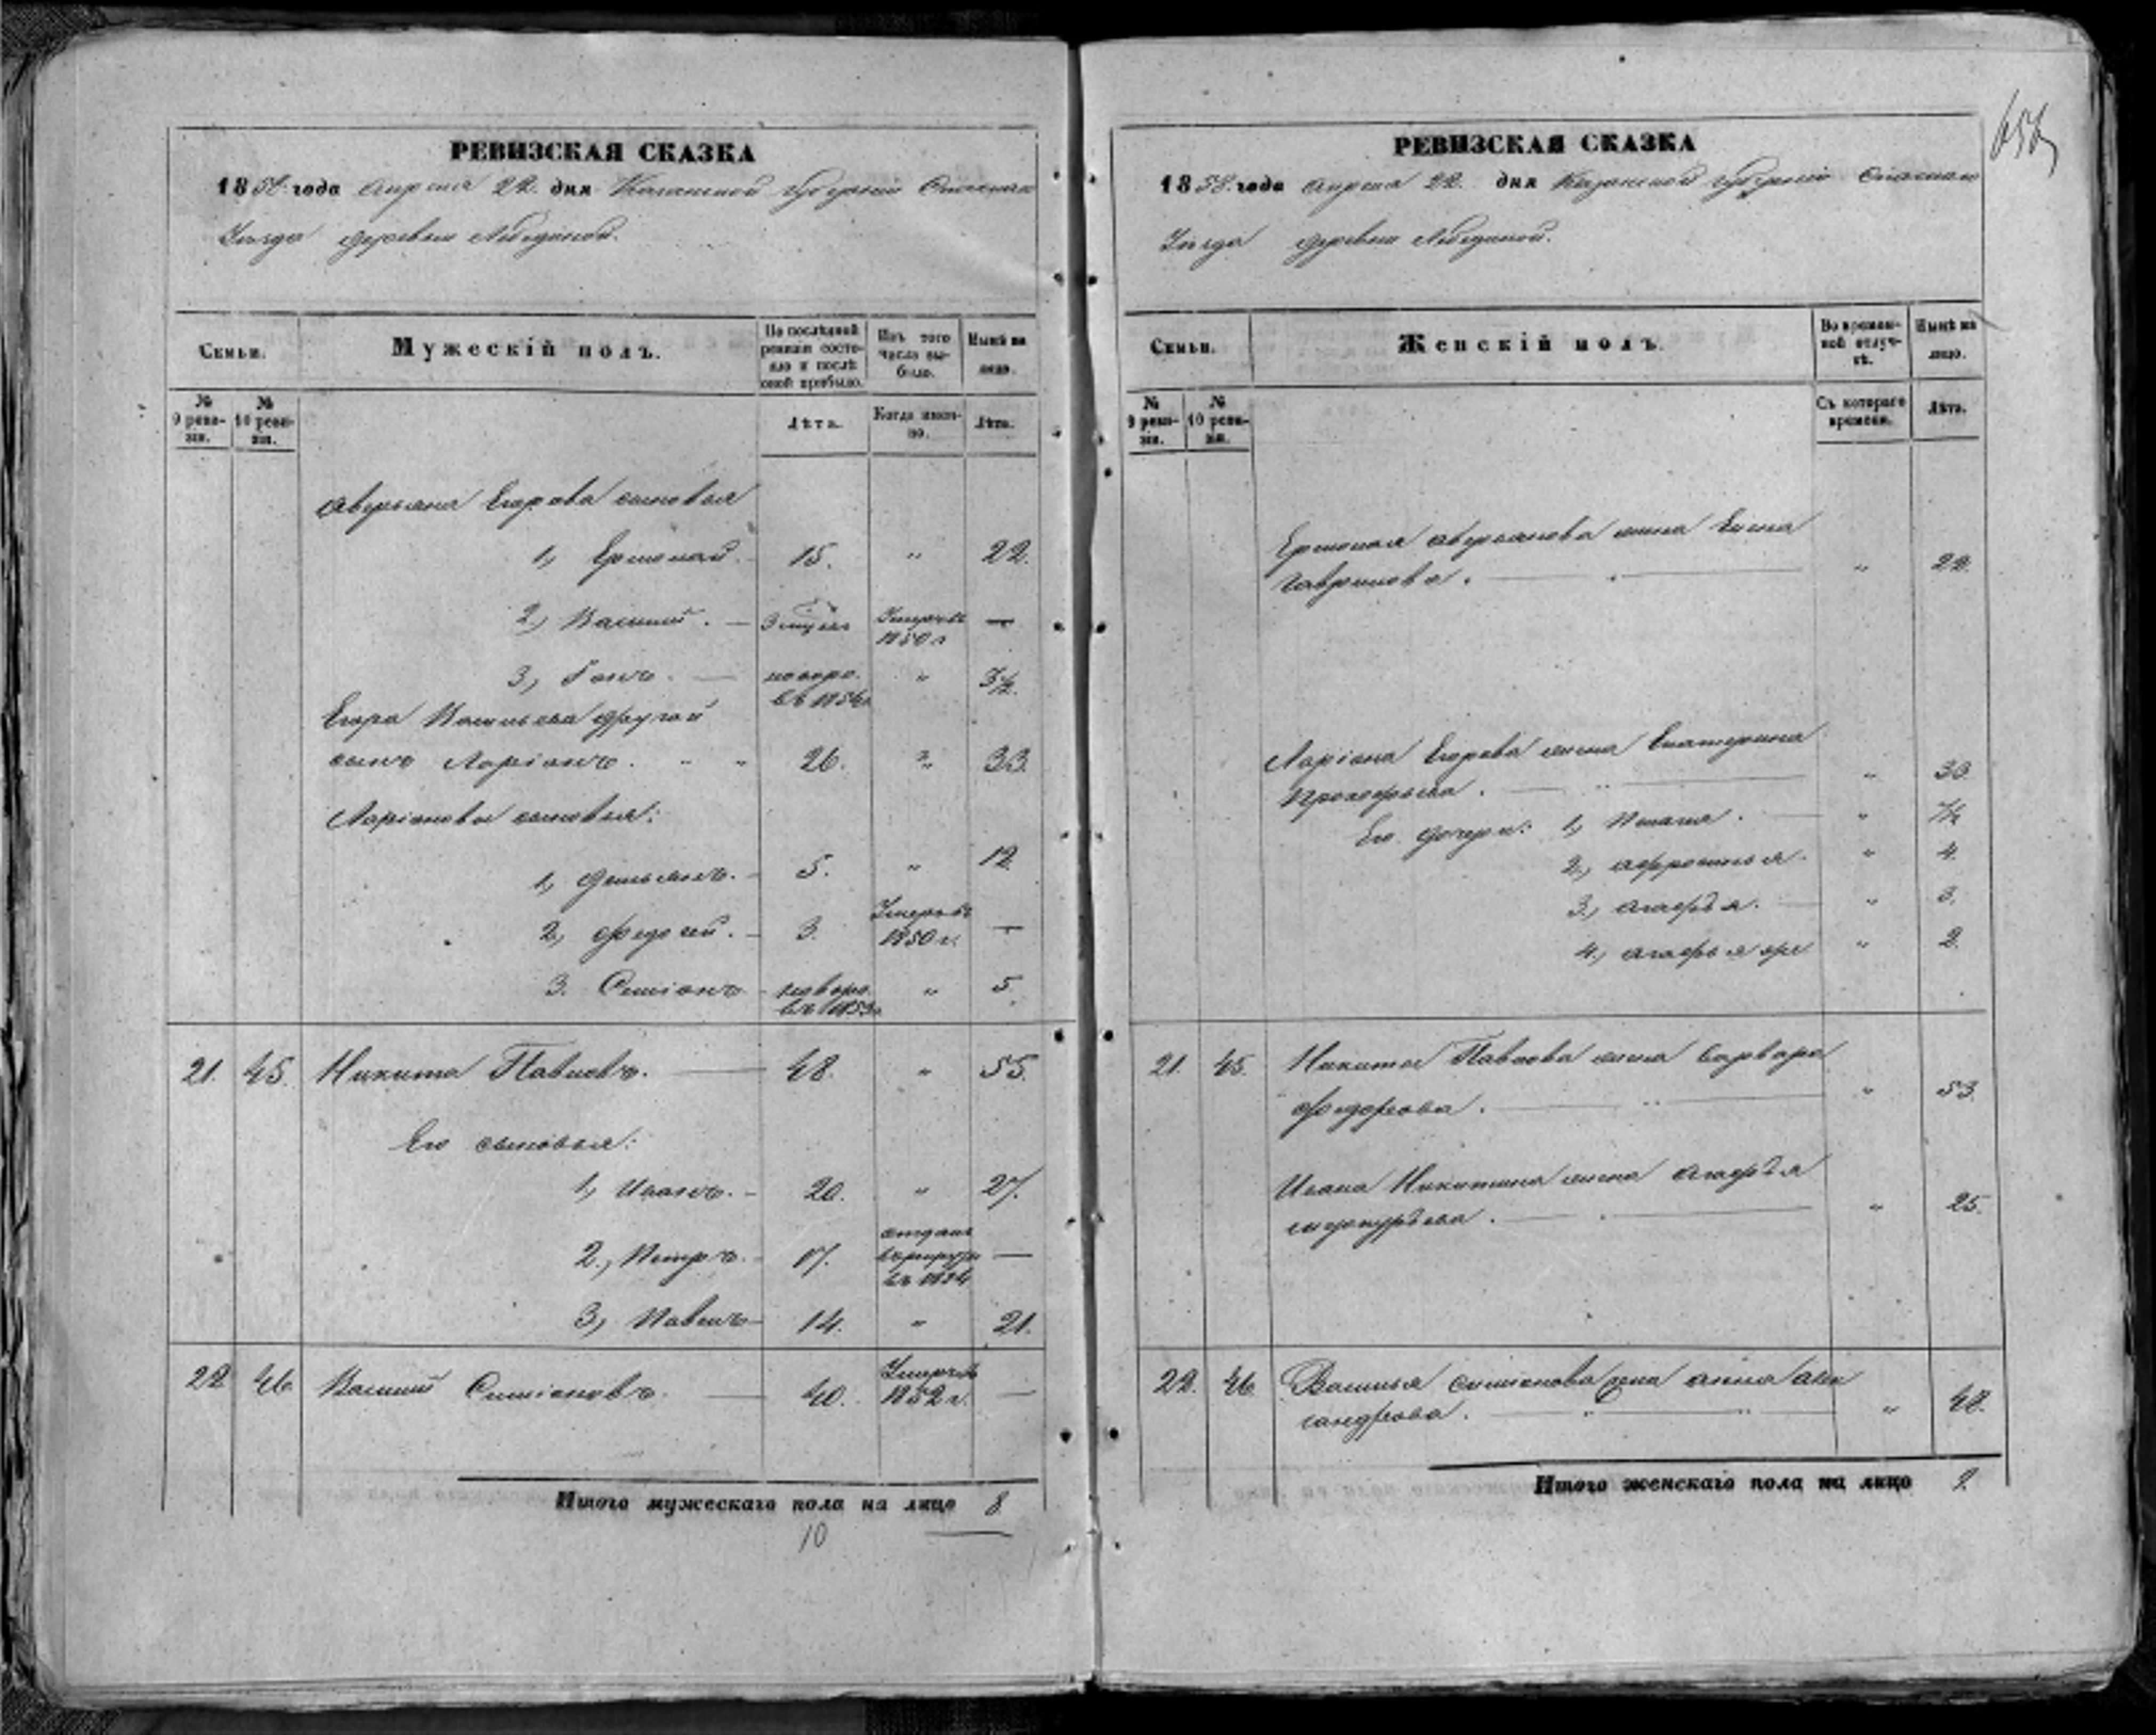 РЕВИЗСКАЯ СКАЗКА
1858 года Апреля 22 дня Казанской губерніи Спасскаго
Уезда деревни Лебединой.
Семьи.
Мужескій полъ.
По послѣдней ревизіи состояло и послѣ оной прибыло.
Изъ того числа выбыло.
Нынѣ на лицо.
№ 9 ревизіи.
№ 10 ревизіи.
Лѣта.
Когда именно.
Лѣта.
Аверьяна Егорова сыновья
1, Ермолай. 15. " 22.
2, Василий. — Умеръ въ 1850 г —
3, — новоро. въ 1854 г " 3½.
Егора Васильева другой
сынъ Ларіонъ. " " 26. " 33.
Ларіоновы сыновья:
1, Демьянъ. 5. " 12.
2, Федосей. 3. Умеръ въ 1850 г. —
3. Симіонъ новоро. въ 1853 г " 5.
21. 45. Никита Павловъ. — 48. " 55.
Его сыновья:
1, Иванъ. 20. " 27.
2, Петръ. 17. отданъ въ рекруты въ 1854 —
3, Павелъ 14. " 21.
22 46 Василий Симіоновъ. — 40. Умеръ въ 1852 г. —
Итого мужескаго пола на лицо 8
10
РЕВИЗСКАЯ СКАЗКА
1858 года Апреля 22 дня Казанской губерніи Спасскаго
Уезда деревни Лебединой.
Семьи.
Женскій полъ.
Во временной отлучкѣ.
Нынѣ на лицо.
№ 9 ревизіи.
№ 10 ревизіи.
Съ котораго времени.
Лѣта.
Ермолая Аверьянова жена Елена
Гаврилова. — " 22.
Ларіона Егорова жена Екатерина
Прокофьева. — " 30
Его дочери: 1, Пелагея. — " 7½
2, Афросинья. " 4.
3, Агафья. — " 3.
4, Агафья " 2.
21. 45. Никиты Павлова жена Варвара
Федорова. — " 53.
Ивана Никитина жена Агафья
— " 25.
22. 46 Василья Симіонова жена Анна Алек
сандрова. — " 48.
Итого женскаго пола на лицо 9.